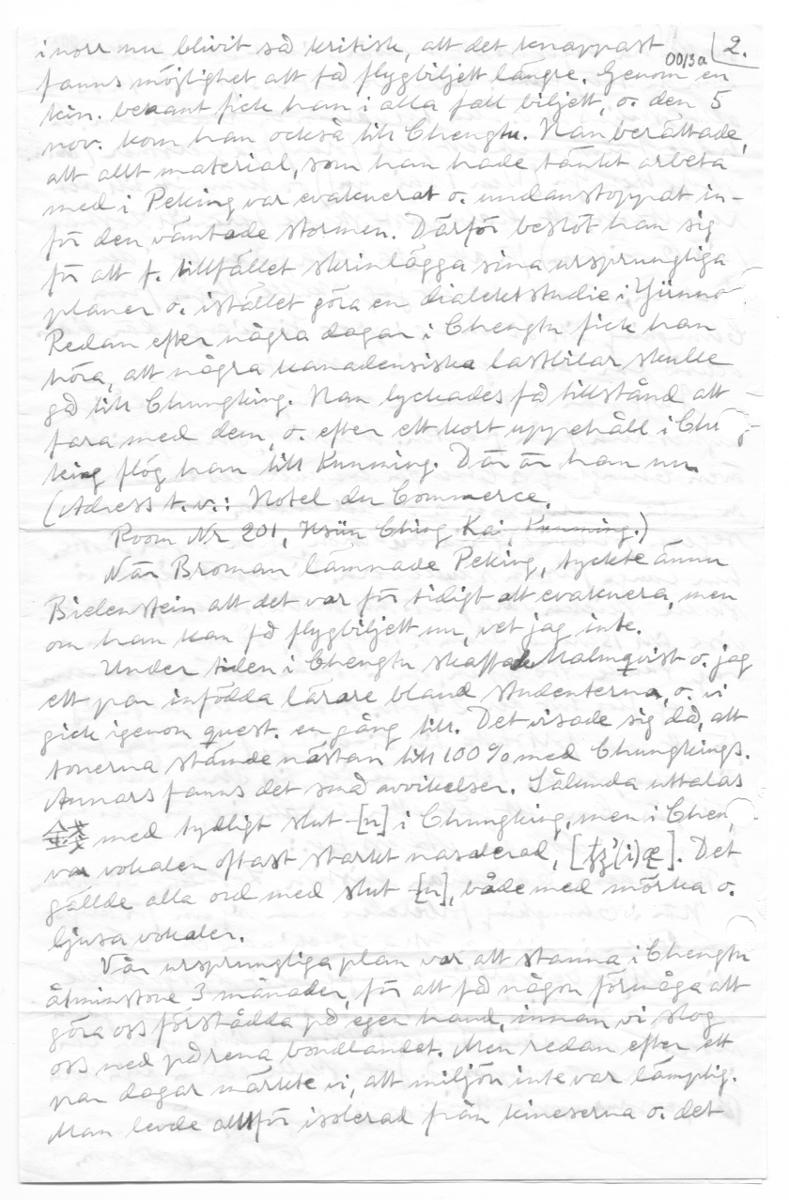 2.
00/3a
i norr nu blivit så kritisk, att det knappast
fanns möjlighet att få flygbiljett längre. Genom en
kin. bekant fick han i alla fall biljett, o. den 5
nov. kom han också till Chengtu. Han berättade,
att allt material, som han hade tänkt arbeta
med i Peking var evakuerat o. undanstoppat in-
för den väntade stormen. Därför beslöt han sig
för att f. tillfället skrinlägga sina ursprungliga
planer o. istället göra en dialektstudie i Yünna
Redan efter några dagar i Chengtu fick han
höra, att några kanadensiska lastbilar skulle
gå till Chungking. Han lyckades få tillstånd att
fara med dem, o. efter ett kort uppehåll i Chu
king flög han till Kunming. Där är han nu
(Adress t.v.: Hotel du Commerce,
Room Nr 201, Hsün Ching Kai, Kunming.)
När Broman lämnade Peking, tyckte ännu
Bielenstein att det var för tidigt att evakuera, men
om han kan få flygbiljett nu, vet jag inte.
Under tiden i Chengtu skaffade Malmqvist o. jag
ett par infödda lärare bland studenterna, o. vi
gick igenom quest. en gång till. Det visade sig då, att
tonerna stämde nästan till 100% med Chungkings.
Annars fanns det små avvikelser. Sålunda uttalas
錢 med tydligt slut-[n] i Chungking, men i Chen
var vokalen oftast starkt nasalerad, [tʑ'(i)æ]. Det
gällde alla ord med slut-[n], både med mörka o.
ljusa vokaler.
Vår ursprungliga plan var att stanna i Chengtu
åtminstone 3 månader, för att få någon förmåga att
göra oss förstådda på egen hand, innan vi slog
oss ned på rena bondlandet. Men redan efter ett
par dagar märkte vi, att miljön inte var lämplig.
Man levde alltför isolerad från kineserna o. det